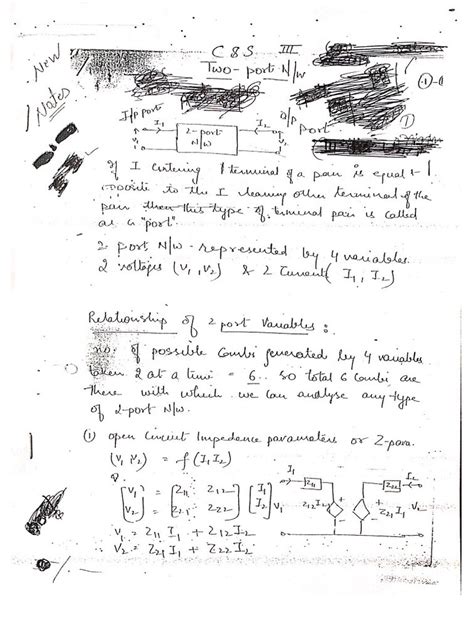 New
Notes
C & S III
Two-port N/w
I/p port
O/p port
I1
I2
V1
2-port
N/w
If I entering 1 terminal of a pair is equal &
opposite to the I leaving other terminal of the
pair then this type of terminal pair is called
as a "port".
2 port N/w - represented by 4 variables.
2 voltages (V1, V2) & 2 Current( I1, I2)
Relationship of 2 port Variables :
no. of possible Combi generated by 4 variables
taken 2 at a time = 6. so total 6 Combi are
there with which we can analyse any type
of 2-port N/w.
(1) open Circuit Impedence parameters or Z-para.
(V1 V2) = f(I1 I2)
[V1 V2] = [Z11 Z12 Z21 Z22] [I1 I2]
V1 = Z11 I1 + Z12 I2
V2 = Z21 I1 + Z22 I2
I1
Z11
Z22
I2
V1
Z12 I2
Z21 I1
V2